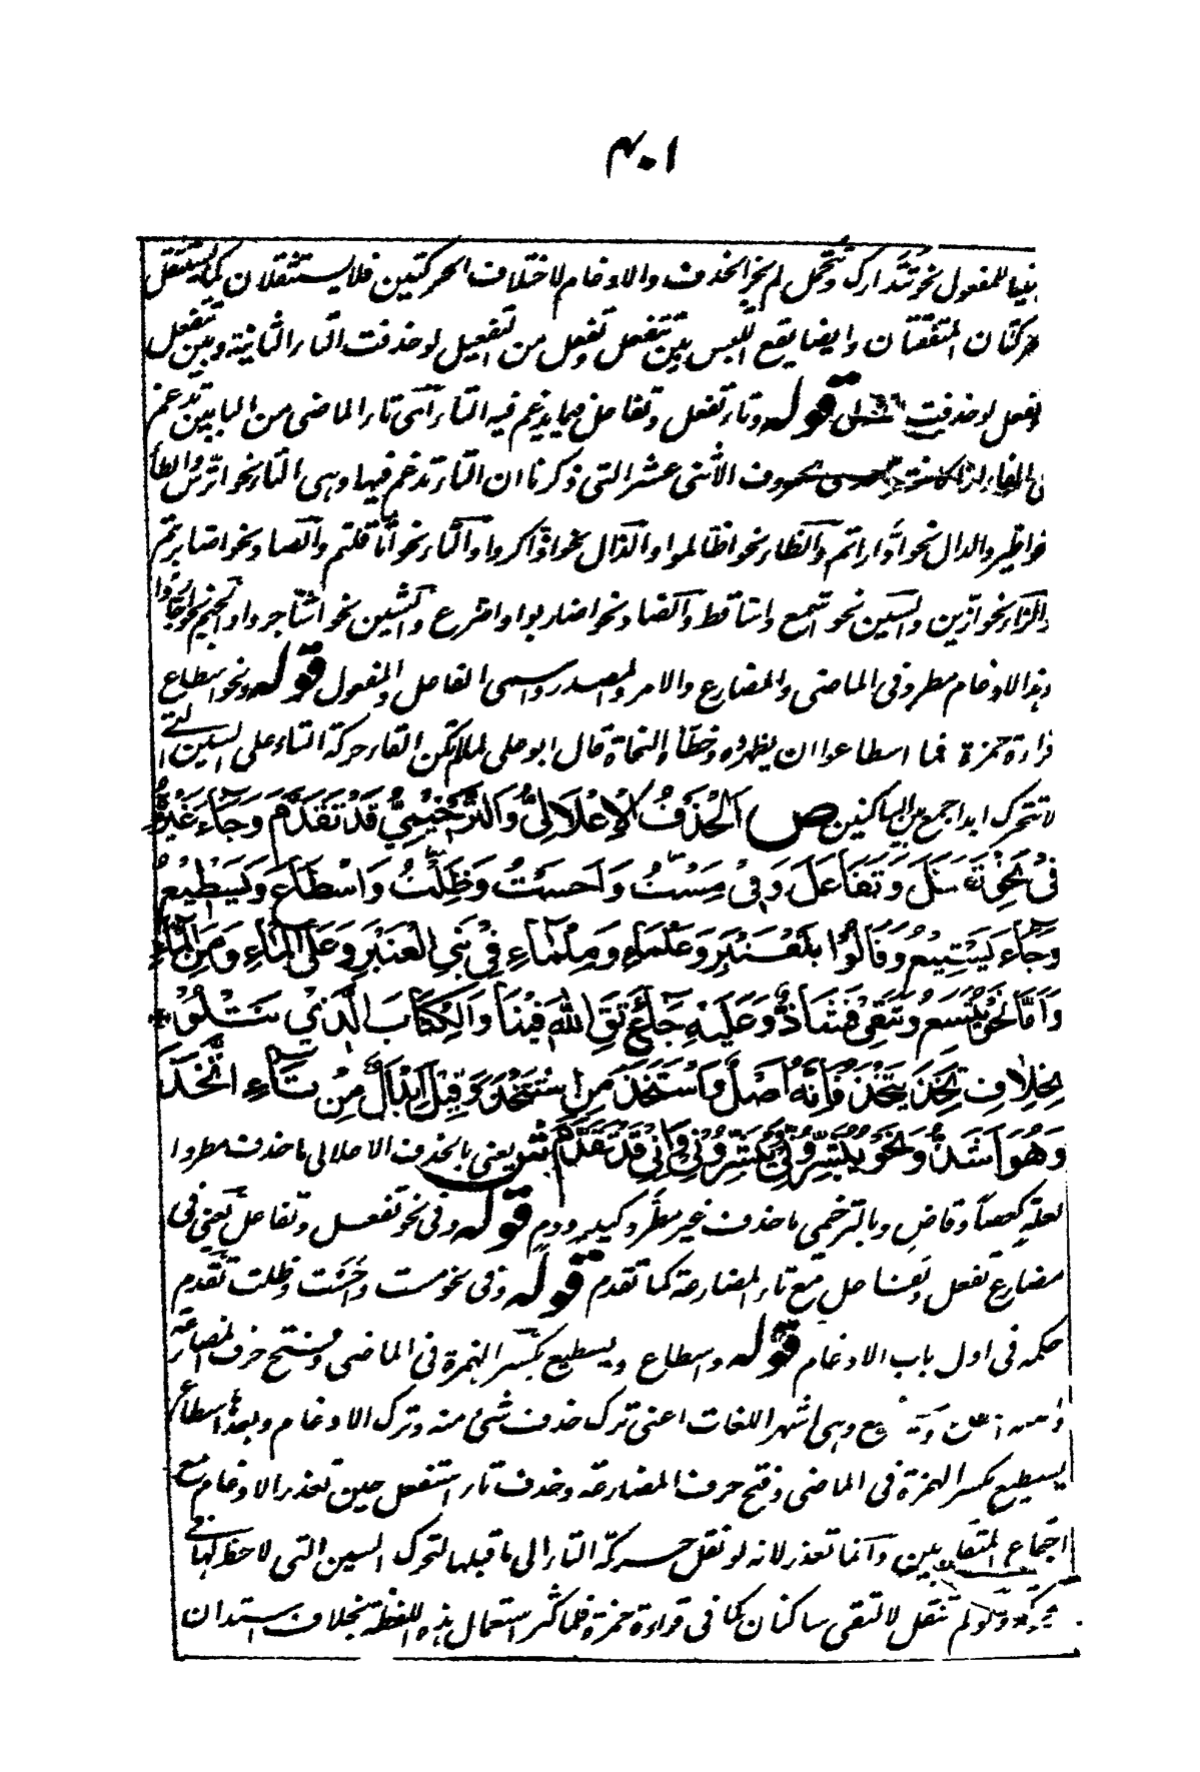 ۴۰۱
بنيا للمفعول نحو تتدارك وتتحمل لم يجز الحذف والادغام لاختلاف الحركتين فلا يستثقلان كما يستثقل
حركتان المتفقتان وايضا يقع اللبس بين تتفعل وتفعل من التفعيل لو حذفت التاء الثانية وبين تتفعل
تفعل لو حذفت قوله وتاء تفعل وتفاعل فيما يدغم فيه التاء آى تاء الماضى من البابين تدغم
فى الفاء اذا كانت حروف الاثنى عشر التى ذكرنا ان التاء تدغم فيها وهى التاء نحو اترس والطاء
نحو اطير والدال نحو ادارأتم والظاء نحو اظالموا والذال نحو اذاكروا والثاء نحو اثاقلتم والصاد نحو اصابرتم
والزاء نحو ازين والسين نحو اسمع واساقط والضاد نحو اضاربوا واضرع والشين نحو اشاجروا والجيم نحو اجاروا
وهذا الادغام مطرد فى الماضى والمضارع والامر والمصدر واسمى الفاعل والمفعول قوله ونحو اسطاع
قراءة حمزة فما اسطاعوا ان يظهروه وخطأه النحاة قال ابو على لما لم يمكن القاء حركة التاء على السين التى
لا تتحرك ابدا جمع بين الساكنين ص اَلْحَذْفُ الْاِعْلَالِىُّ وَالتَّرْخِيْمِيُّ قَدْ تَقَدَّمَ وَجَاءَ غَيْرُهُ
فِىْ نَحْوِ تَفَعَّلَ وَتَفَاعَلَ وَفِىْ مِسْتُ وَاَحَسْتُ وَظِلْتُ وَاسْطَاعَ وَيَسْطِيْعُ
وَجَاءَ يَسْتِيْعُ وَقَالُوْا بَلْعَنْبَرِ وَعَلْمَاءِ وَمِلْمَاءِ فِىْ بَنِى الْعَنْبَرِ وَعَلَى الْمَاءِ وَمِنَ الْمَاءِ
وَاَمَّا نَحْوُ يَتَسِعُ وَتَتَقِىْ فَشَاذٌّ وَعَلَيْهِ جَاءَ ع تَقِ اللهَ فِيْنَا وَالْكِتَابَ الَّذِىْ تَتْلُوْ
بِخِلَافِ تَخِذَ يَتْخَذُ فَاِنَّهُ اَصْلٌ وَاسْتَخَذَ مِنِ اسْتَتْخَذَ وَقِيْلَ اِبْدَالٌ مِنْ تَاءِ اتَّخَذَ
وَهُوَ اَشَذُّ وَنَحْوُ تُبَشِّرُوْنِىْ وَاِنِّىْ قَدْ تَقَدَّمَ ش يعنى بالحذف الاعلالى ما حذف مطردا
لعلة كعصًا وقاضٍ وبالترخيمى ما حذف غير مطرد كيدٍ ودمٍ قوله وفى نحو تفعل وتفاعل يعنى فى
مضارع تفعل وتفاعل مع تاء المضارعة كما تقدم قوله وفى نحو مست واحست وظلت تقدم
حكمه فى اول باب الادغام قوله واسطاع ويسطيع بكسر الهمزة فى الماضى وفتح حرف المضارعة
وهى اشهر اللغات اعنى ترك حذف شئ منه وترك الادغام وبعدها اسطاع
يسطيع بكسر الهمزة فى الماضى وفتح حرف المضارعة وحذف تاء استفعل حين تعذر الادغام مع
اجتماع المتقاربين وانما تعذر لانه لو نقل حركة التاء الى ما قبلها لتحرك السين التى لا حظ لها فى
الحركة ولو لم تنقل لالتقى ساكنان كما فى قراءة حمزة فلما كثر استعمال هذه اللفظة بخلاف استدان